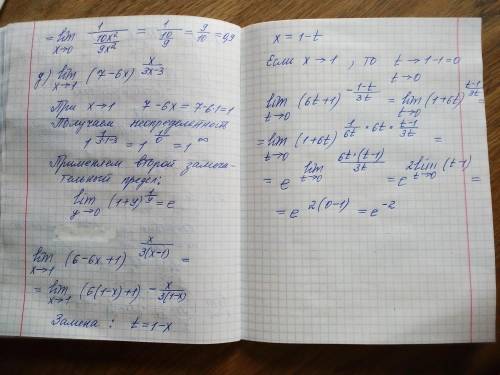 = lim x→0 1/(10x²/9x²) = 1/(10/9) = 9/10 = 0,9
д) lim x→1 (7-6x)^(x/(3x-3))
При x→1 7-6x = 7-6·1=1
Получаем неопределенность
Применяем второй замеча-
тельный предел:
lim y→0 (1+y)^(1/y) = e
lim x→1 (6-6x+1)^(x/(3(x-1))) =
= lim x→1 (6(1-x)+1)^(-x/(3(1-x)))
Замена: t=1-x
x = 1-t
Если x→1, то t→1-1=0
t→0
lim t→0 (6t+1)^(-(1-t)/3t) = lim t→0 (1+6t)^((t-1)/3t)
= lim t→0 (1+6t)^(1/6t · 6t · (t-1)/3t) =
= e^(lim t→0 6t·(t-1)/3t) = e^(2 lim t→0 (t-1)) =
= e^(2(0-1)) = e^(-2)